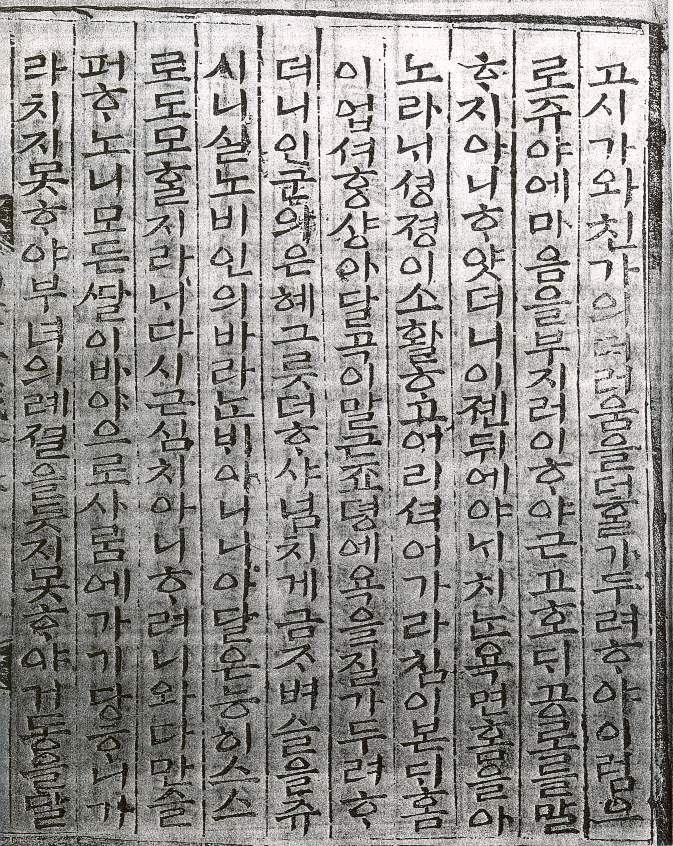 고시가와친가의더러움을더홀가두려ᄒᆞ야이럼으
로쥬야에마음을부지러이ᄒᆞ야근고호ᄃᆡ공로를말
ᄒᆞ지아니ᄒᆞ얏더니이졘뒤에야ᄂᆡ치ᄂᆞᆫ욕면홈을아
노라ᄂᆡ셩졍이소활ᄒᆞ고어리셕어가라침이본ᄃᆡ홈
이업셔ᄒᆞᆼ샹아달곡이말근죠뎡에욕을질가두려ᄒᆞ
더니인군의은혜그릇더ᄒᆞ샤넘치게금ᄌᆞ벼슬을쥬
시니실노비인의바라ᄂᆞᆫᄇᆡ아니니아달은능히스스
로도모홀지라ᄂᆡ다시근심치아니ᄒᆞ려니와다만슬
퍼ᄒᆞ노니모든ᄯᅡᆯ이바야으로사ᄅᆞᆷ에가기당ᄒᆞ니가
라치지못ᄒᆞ야부녀의례졀을듯지못ᄒᆞ야거동을말